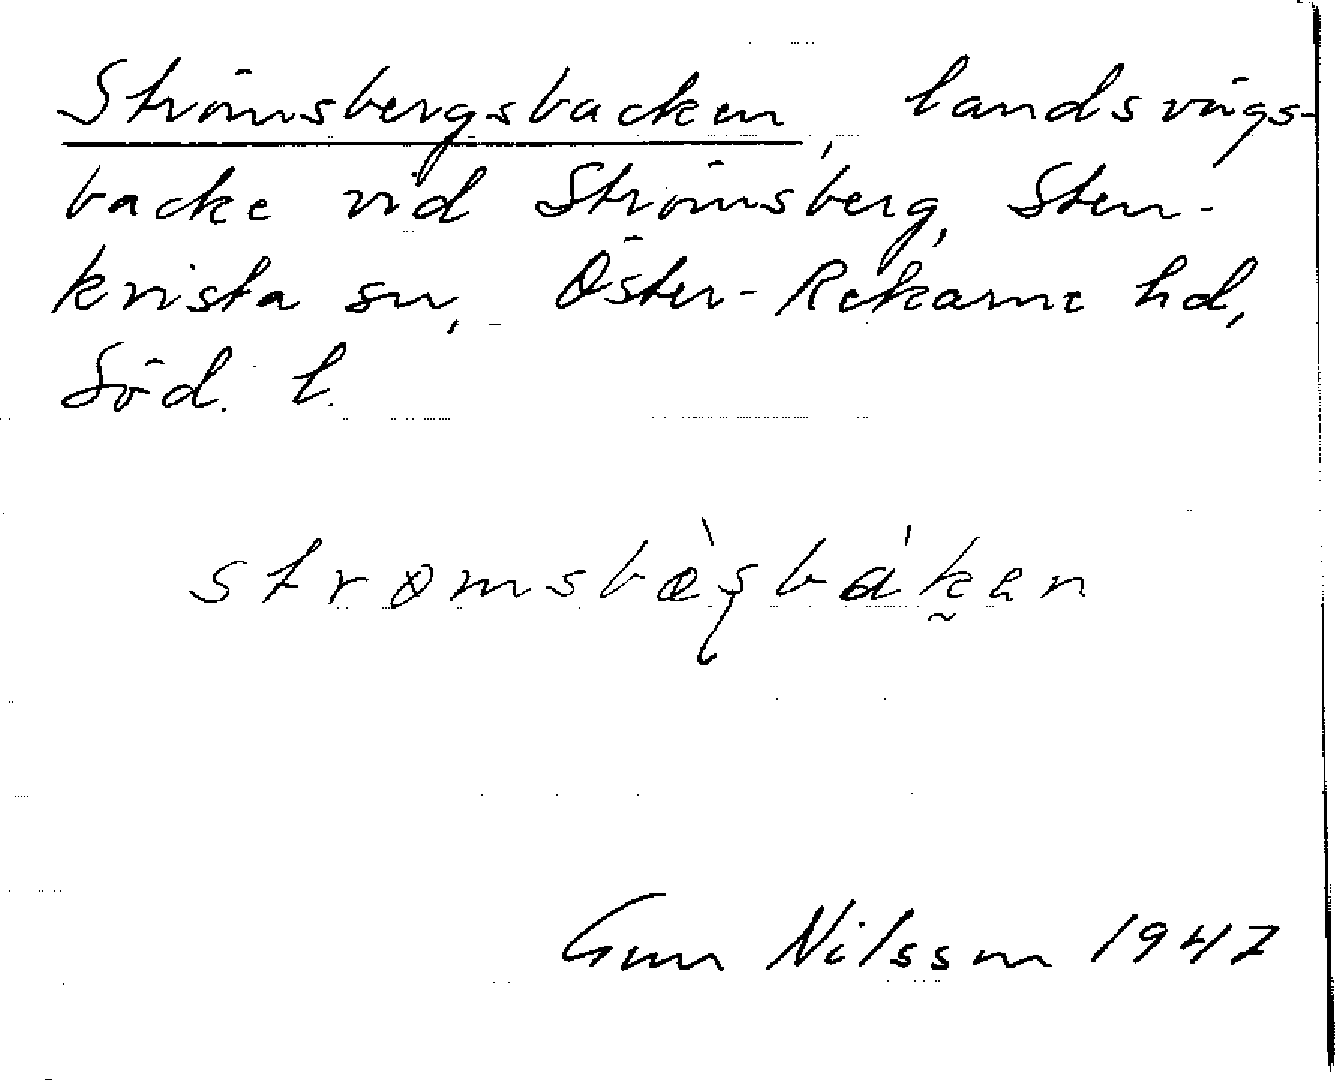 Strömsbergsbacken, landsvägs-
backe vid Strömsberg, Sten-
kvista sn, Öster-Rekarne hd,
Söd. l.
strømsbæ̀ʂbákən
Gun Nilsson 1947